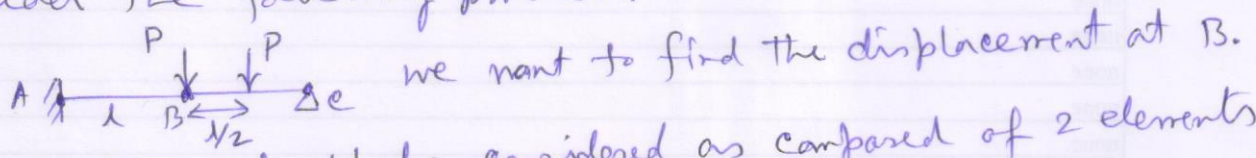 P P we want to find the displacement at B.
A l B l/2 C
considered as composed of 2 elements